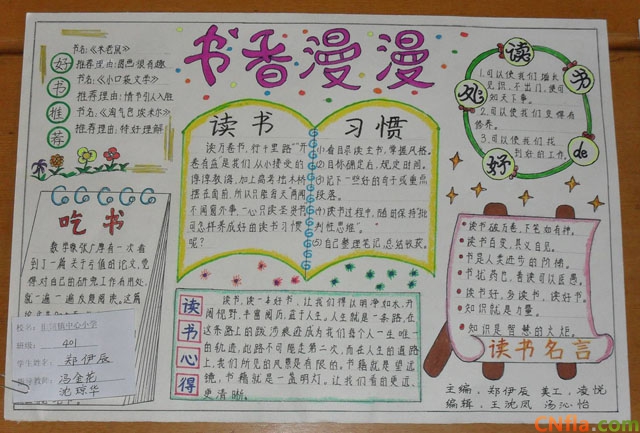 书香漫漫
好书推荐
书名:《木老鼠》
推荐理由:圆然很有趣
书名:《小口袋文学》
推荐理由:情节引人入胜
书名:《淘气包埃米尔》
推荐理由:特好理解
读书
读万卷书,行千里路"开
卷有益是我们从小接受的
谆谆教诲,加上高考独木桥
摆在面前,所以只能每天两闻
不闻窗外事,一心只读圣贤书
可怎样养成好的读书习惯
呢?
习惯
(1)看目录读主书,掌握风格。
(2)目标确定后,规定时间。
(3)记下一些好的句子或重点
段落。
(4)读书过程中,随时保持"批
判性思维"。
(5)自己整理笔记,总结收获。
读书de好处
1.可以使我们增长
见识,不出门,便可
知天下事。
2.可以使我们变得有
修养。
3.可以使我们找
到好的工作。
吃书
数学家张广厚有一次看
到了一篇关于亏值的论文,觉
得对自己的研究工作有用处,
就一遍一遍反复阅读。这篇
校名:
中心小学
班级:401
学生姓名:郑伊辰
指导教师:冯金花
沈琼华
读书心得
读书,读一本好书,让我们得以明净如水,开
阔视野,丰富阅历,益于人生。人生就是一条路,在
这条路上的跋涉痕迹成为我们每个人一生唯一
的轨迹,此路不可能走第二次,而在人生的道路
上,我们所见的风景是有限的。书籍就是望远
镜,书籍就是一盏明灯,让我们看的更远、
更清晰。
读书破万卷,下笔如有神。
读书百变,其义自见。
书是人类进步的阶梯。
书犹药也,善读可以医愚。
读书好,多读书,读好书。
知识就是力量。
知识是智慧的火炬。
读书名言
主编:郑伊辰 美工:凌悦
编辑:王沈凤 汤沁怡
CNlla.com